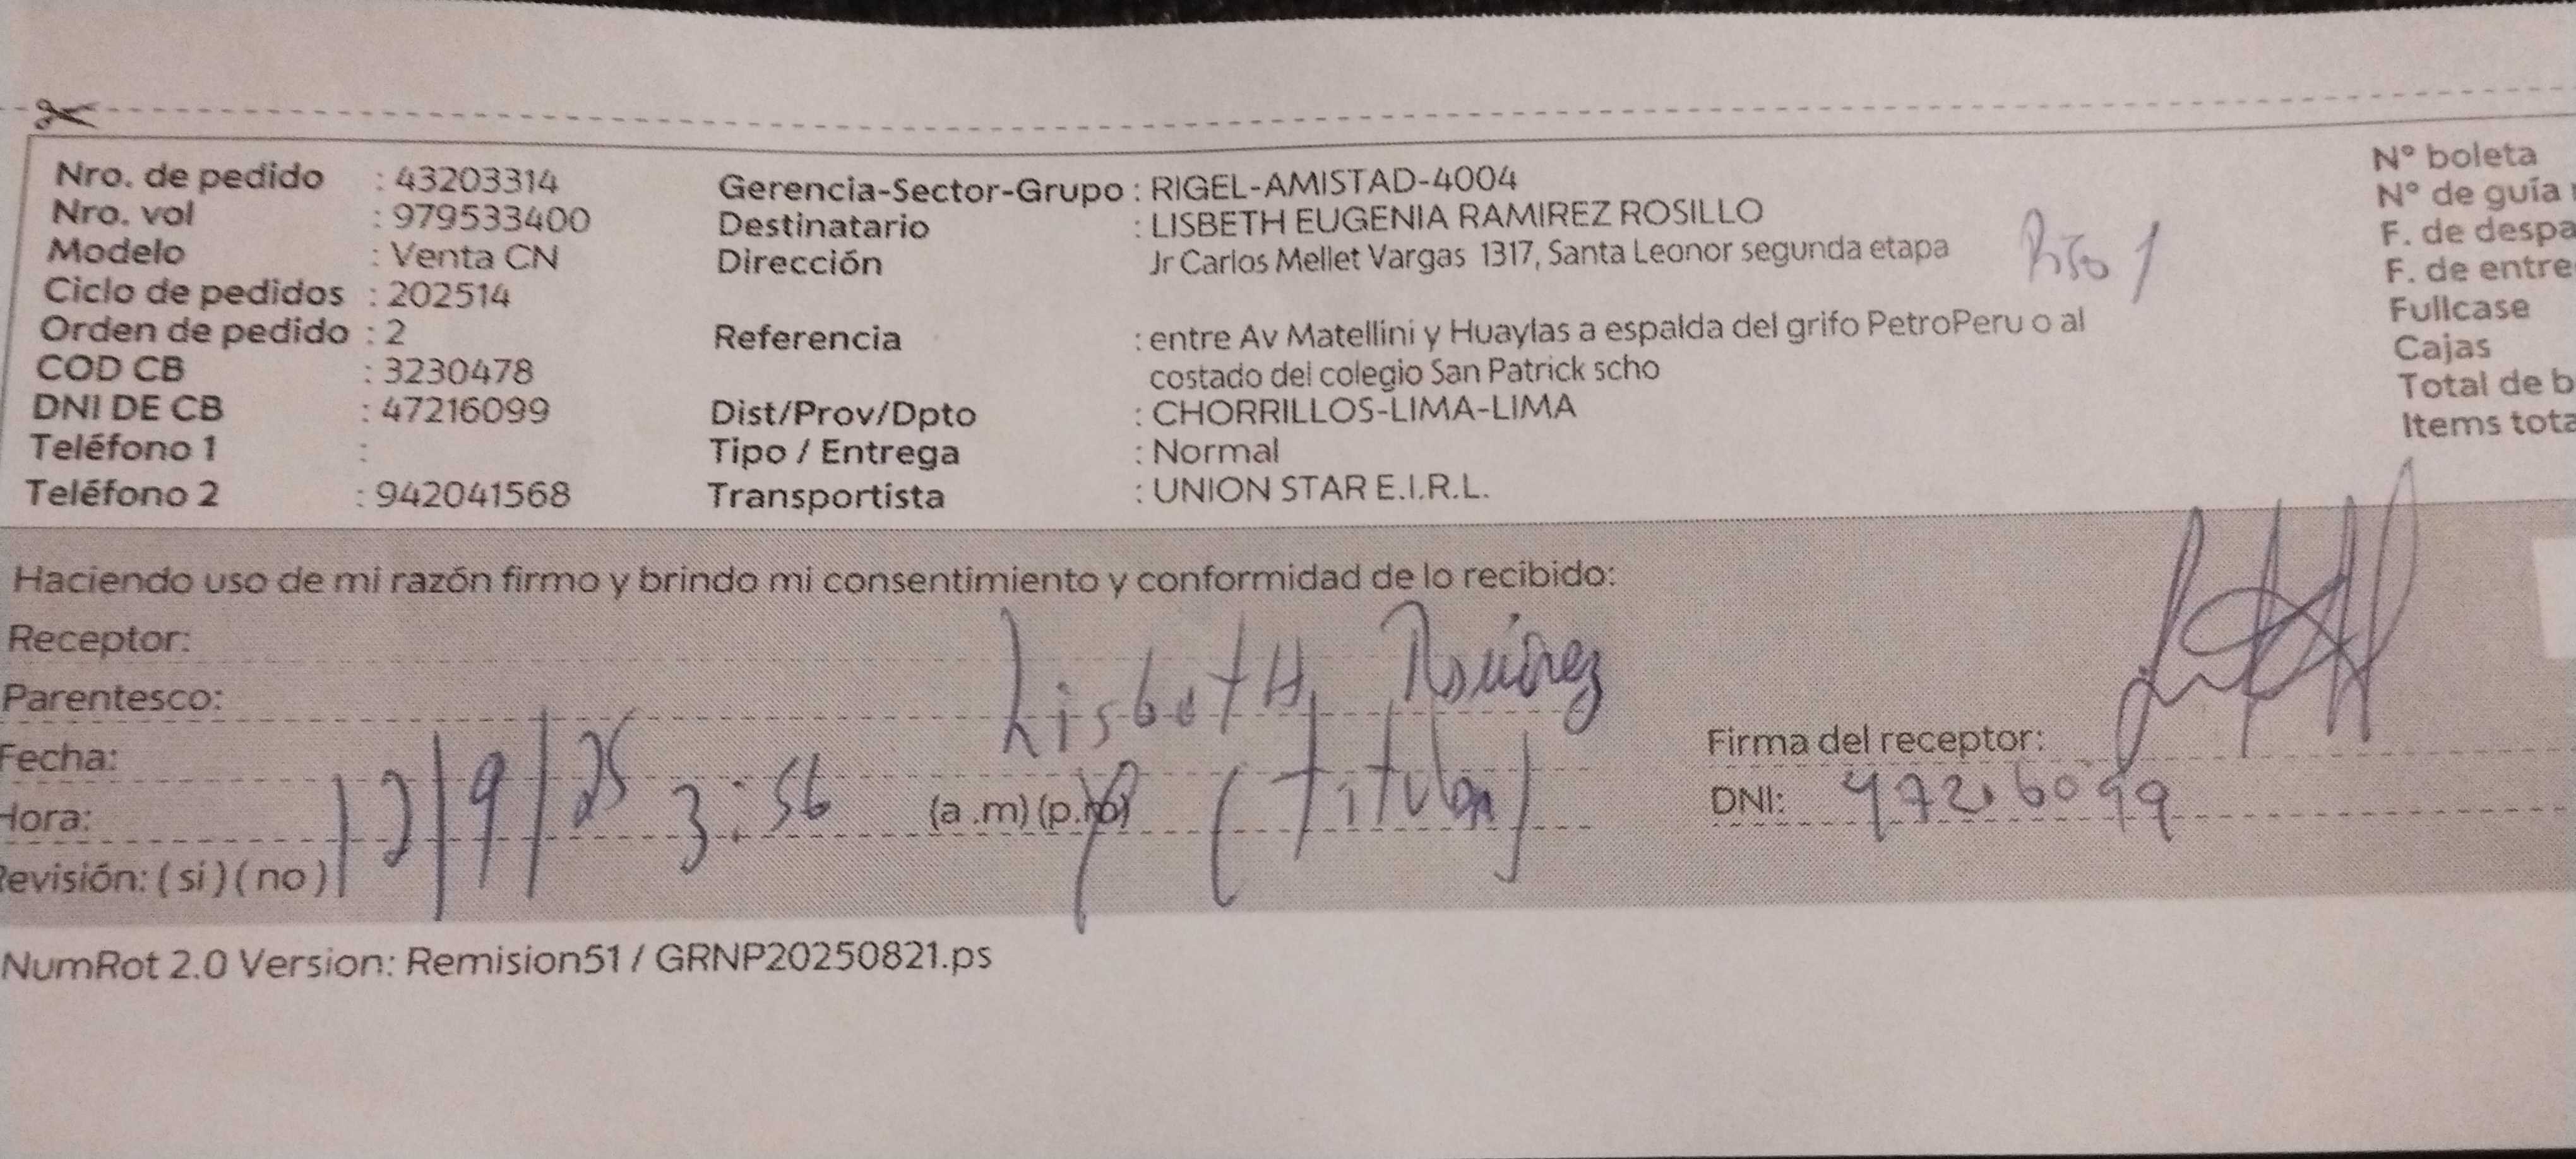 Nro. de pedido : 43203314
Nro. vol : 979533400
Modelo : Venta CN
Ciclo de pedidos : 202514
Orden de pedido : 2
COD CB : 3230478
DNI DE CB : 47216099
Teléfono 1 :
Teléfono 2 : 942041568
Gerencia-Sector-Grupo : RIGEL-AMISTAD-4004
Destinatario : LISBETH EUGENIA RAMIREZ ROSILLO
Dirección Jr Carlos Mellet Vargas 1317, Santa Leonor segunda etapa
Referencia : entre Av Matellini y Huaylas a espalda del grifo PetroPeru o al
costado del colegio San Patrick scho
Dist/Prov/Dpto : CHORRILLOS-LIMA-LIMA
Tipo / Entrega : Normal
Transportista : UNION STAR E.I.R.L.
Piso 1
N° boleta
N° de guía
F. de despa
F. de entre
Fullcase
Cajas
Total de b
Items tota
Haciendo uso de mi razón firmo y brindo mi consentimiento y conformidad de lo recibido:
Receptor: Lisbeth Ramirez
Parentesco: (Titular)
Fecha: 12/9/25
Hora: 3:56 (a .m) (p.m)
Revisión: ( si ) ( no )
Firma del receptor:
DNI: 47216099
NumRot 2.0 Version: Remision51 / GRNP20250821.ps